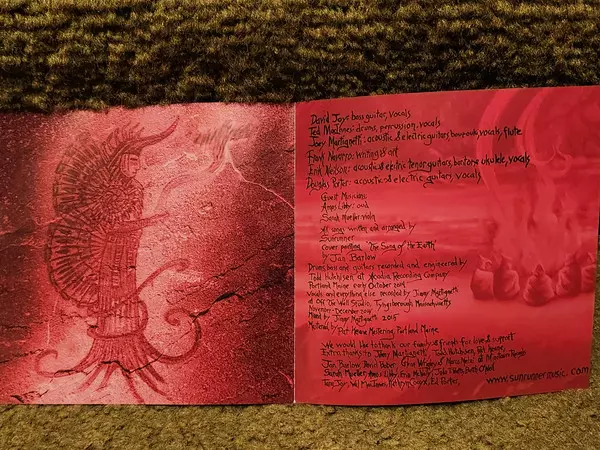 David Joy: bass guitar, vocals
Ted MacInnes: drums, percussion, vocals
Joey Martignetti: acoustic & electric guitars, bouzouki, vocals, flute
Frank Navarro: writing & art
Erik Nelson: acoustic & electric tenor guitars, baritone ukulele, vocals
Douglas Porter: acoustic & electric guitars, vocals
Guest Musicians:
Amos Libby: oud
Sarah Mueller: violin
All songs written and arranged by
Sunrunner
Cover painting "The Song of the Earth"
by Jan Barlow
Drums, bass and guitars recorded and engineered by
Todd Hutchisen at Acadia Recording Company
Portland Maine early October 2014
Vocals and everything else recorded by Jimmy Martignetti
at Off The Wall Studio, Tyngsborough Massachusetts
November-December 2014
Mixed by Jimmy Martignetti 2015
Mastered by Pat Keane Mastering, Portland Maine
We would like to thank our family & friends for love & support
Extra thanks to Jimmy Martignetti, Todd Hutchisen, Pat Keane,
Jan Barlow, David
Sarah Mueller, Amos Libby,
Ed Porter,
www.sunrunnermusic.com